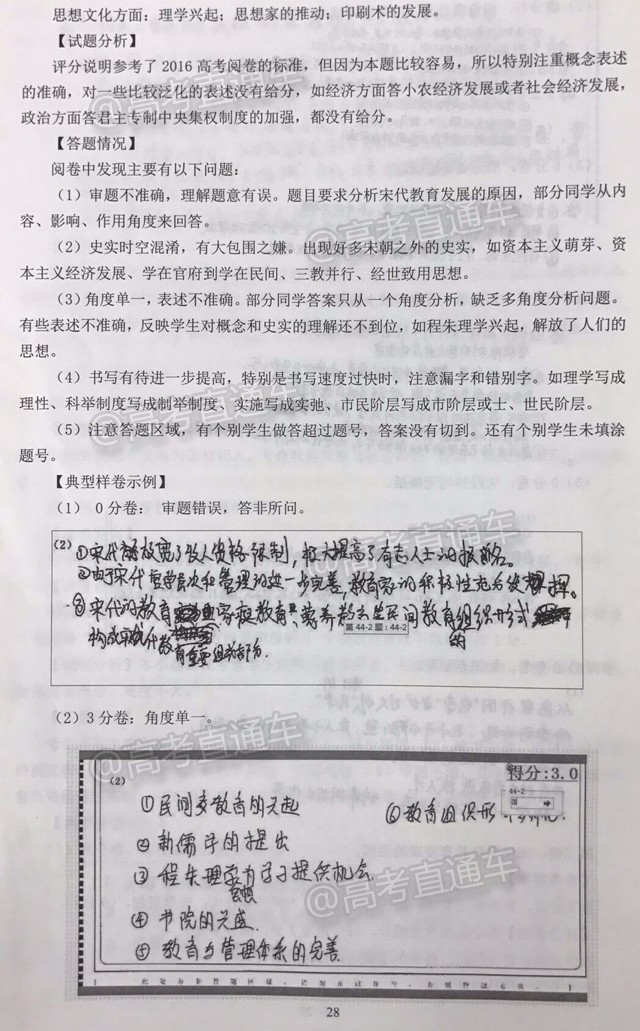 思想文化方面：理学兴起；思想家的推动；印刷术的发展。
【试题分析】
评分说明参考了 2016 高考阅卷的标准，但因为本题比较容易，所以特别注重概念表述
的准确，对一些比较泛化的表述没有给分，如经济方面答小农经济发展或者社会经济发展，
政治方面答君主专制中央集权制度的加强，都没有给分。
【答题情况】
阅卷中发现主要有以下问题：
（1）审题不准确，理解题意有误。题目要求分析宋代教育发展的原因，部分同学从内
容、影响、作用角度来回答。
（2）史实时空混淆，有大包围之嫌。出现好多宋朝之外的史实，如资本主义萌芽、资
本主义经济发展、学在官府到学在民间、三教并行、经世致用思想。
（3）角度单一，表述不准确。部分同学答案只从一个角度分析，缺乏多角度分析问题。
有些表述不准确，反映学生对概念和史实的理解还不到位，如程朱理学兴起，解放了人们的
思想。
（4）书写有待进一步提高，特别是书写速度过快时，注意漏字和错别字。如理学写成
理性、科举制度写成制举制度、实施写成实弛、市民阶层写成市阶层或士、世民阶层。
（5）注意答题区域，有个别学生做答超过题号，答案没有切到。还有个别学生未填涂
题号。
【典型样卷示例】
（1） 0 分卷： 审题错误，答非所问。
(2) ①宋代放宽了收人资格限制，极大提高了有志人士的积极
②由于宋代官学层次和管理的进一步完善，教育家的积极性充分发挥。
③宋代的教育家庭教育 蒙养 民间教育组织形式
第 44-2 题 : 44-2
构成宋代教育重要组成部分.
（2）3 分卷：角度单一。
得分:3.0
(2)
44-2
①民间教育的兴起
⑥教育组织形
②新儒学的提出
③程朱理学为学子提供机会
④书院的兴盛.
⑤教育与管理体系的完善
28
@高考直通车
@高考直通车
@高考直通车
@高考直通车
@高考直通车
@高考直通车